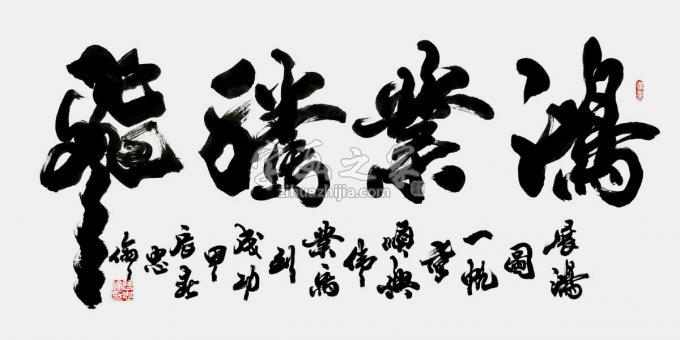 鴻業騰飛
展鴻
圖
一帆
風
順興
偉
業馬
到
成功
甲
忠
字画之家
zihuazhijia.com